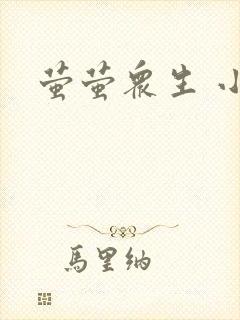 萤萤众生 小
馬里纳